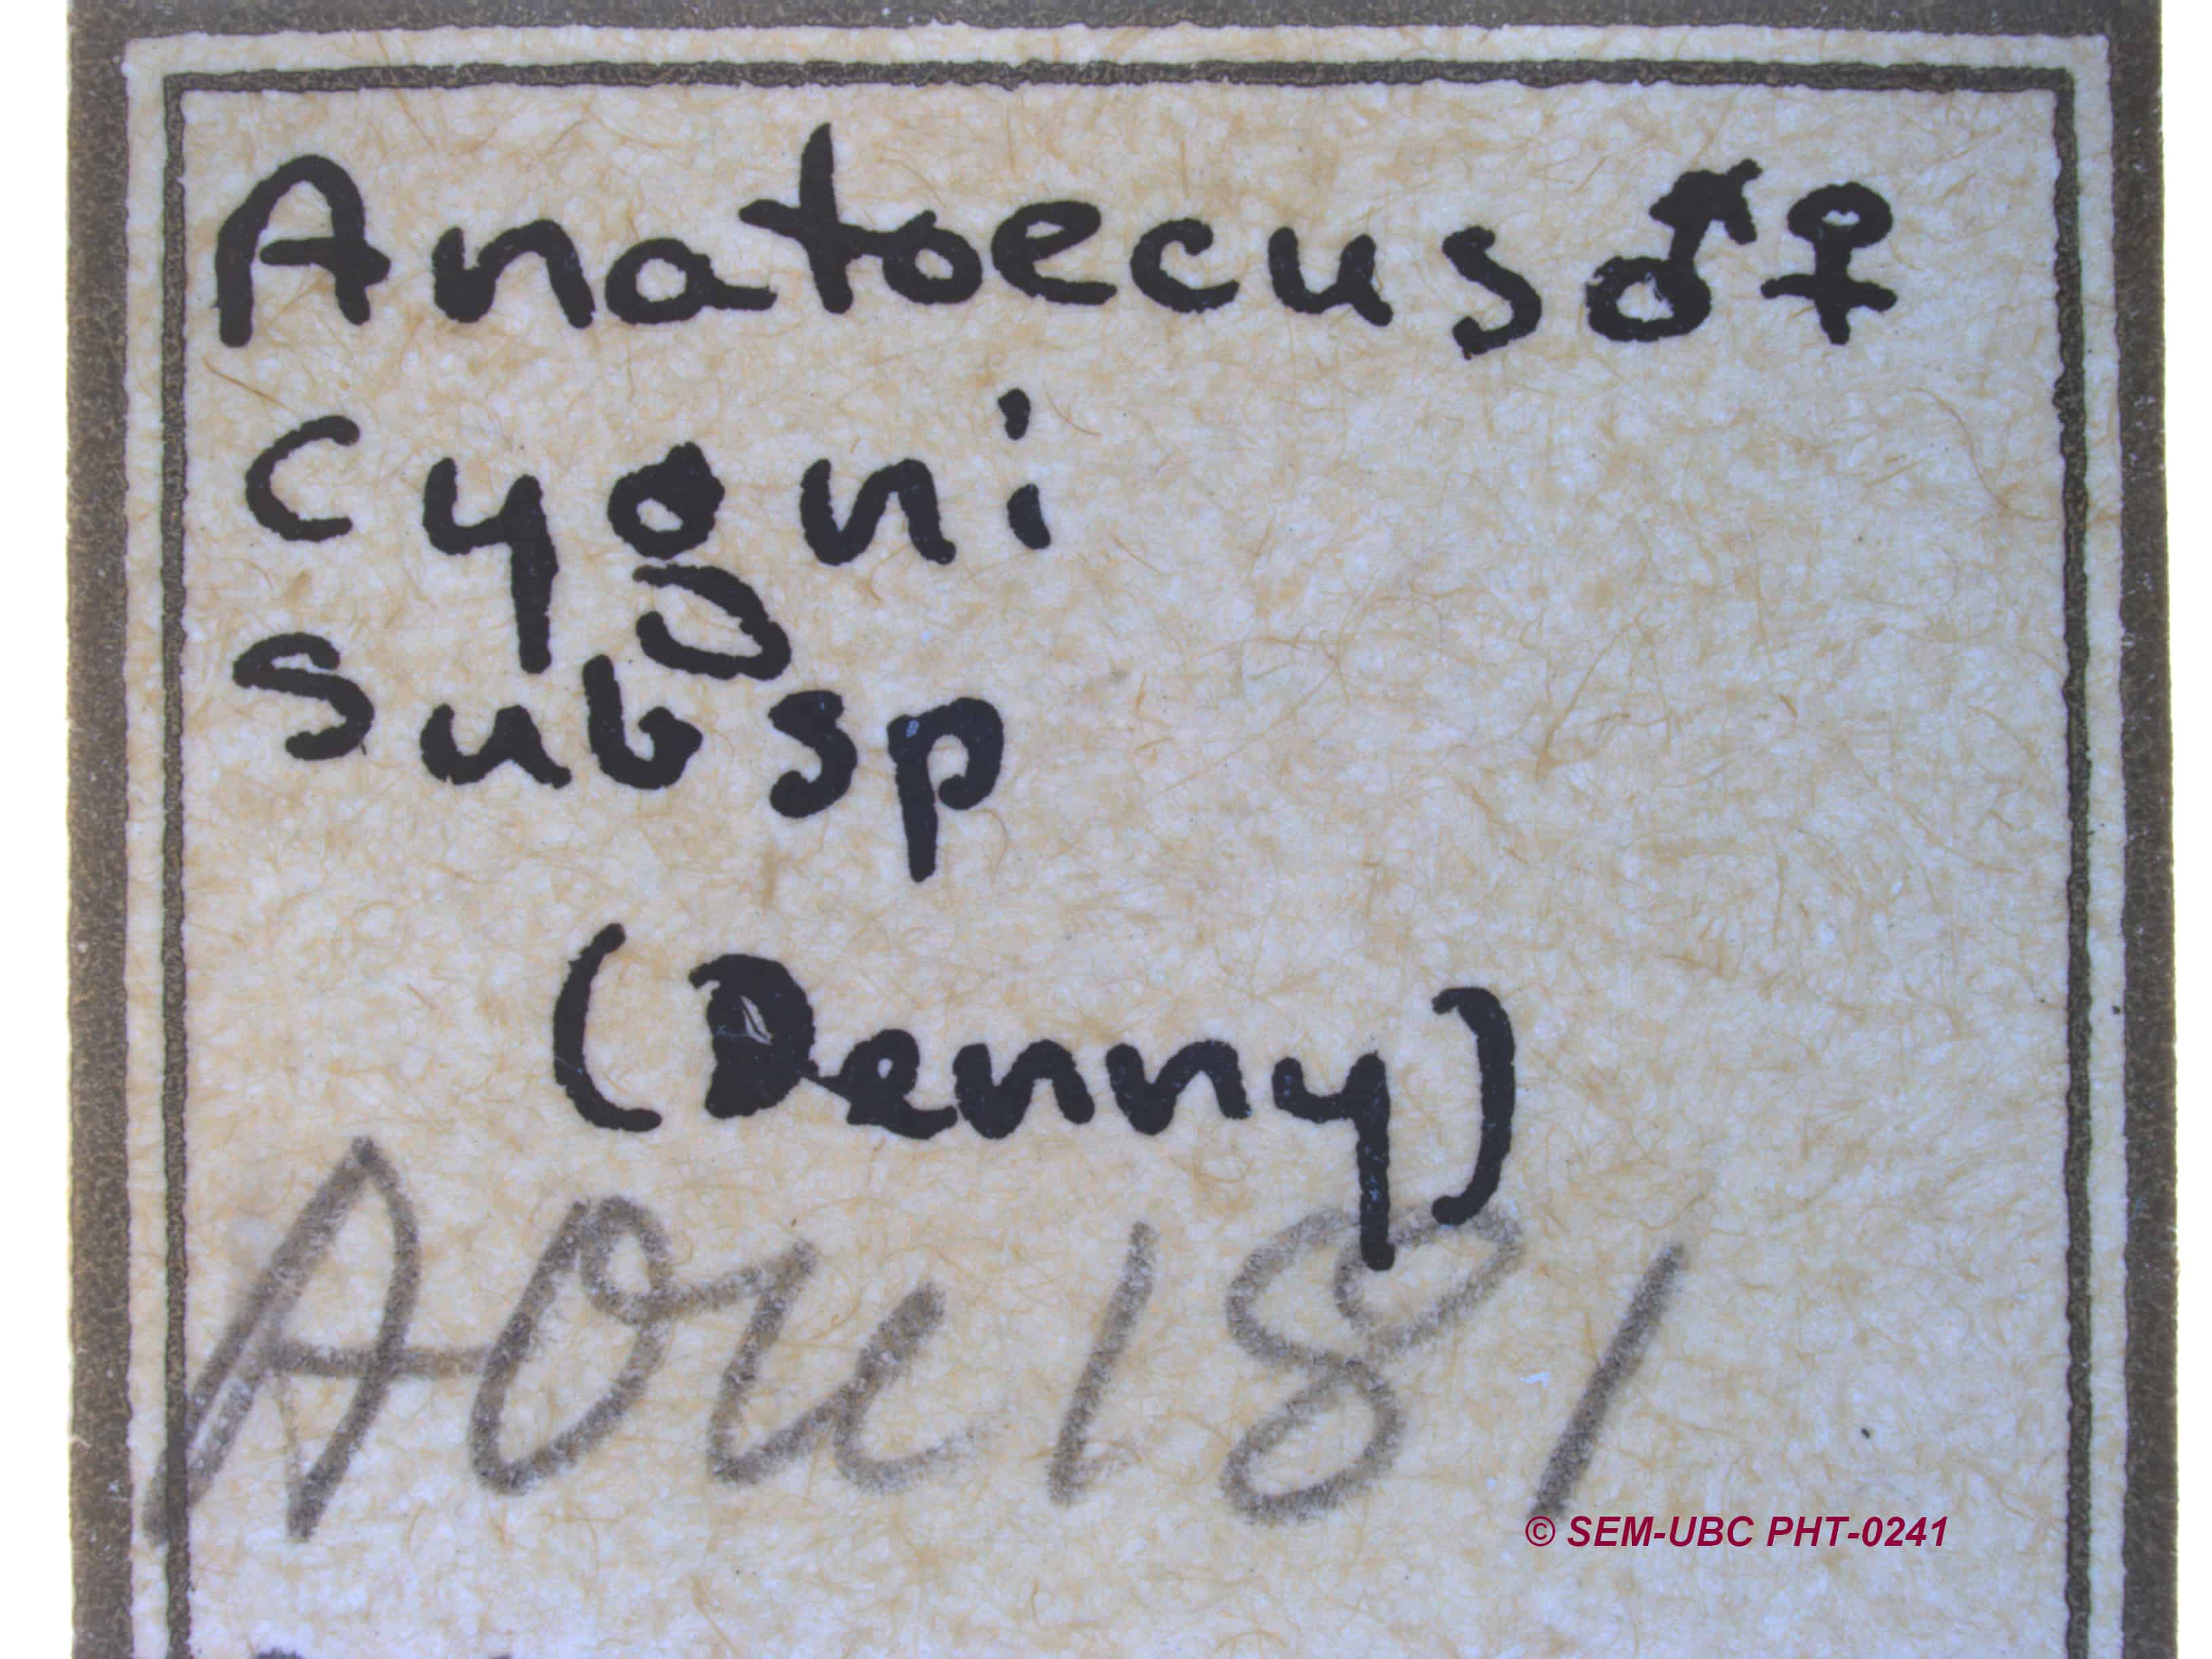 Anatoecus ♂♀
Cygni
Subsp
(Denny)
AOU 181
© SEM-UBC PHT-0241